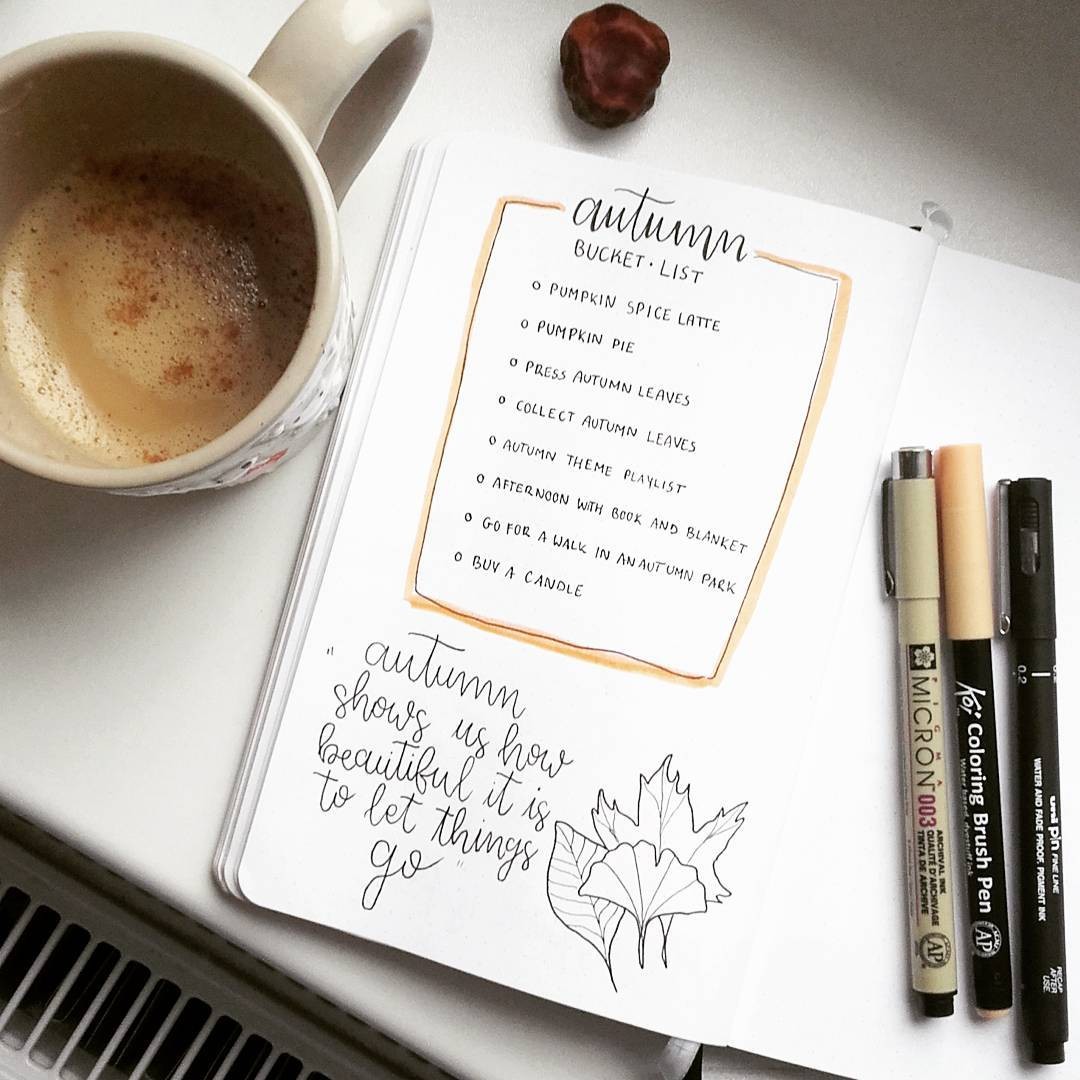 autumn
BUCKET · LIST
o PUMPKIN SPICE LATTE
o PUMPKIN PIE
o PRESS AUTUMN LEAVES
o COLLECT AUTUMN LEAVES
o AUTUMN THEME PLAYLIST
o AFTERNOON WITH BOOK AND BLANKET
o GO FOR A WALK IN AN AUTUMN PARK
o BUY A CANDLE
" autumn
shows us how
beautiful it is
to let things
go "
PIGMA
MICRON 003
ARCHIVAL INK
QUALITÉ D'ARCHIVAGE
TINTA DE ARCHIVE
AP
Koi Coloring Brush Pen
Water based, dyestuff ink
AP
0.2
uni pin FINE LINE
WATER AND FADE PROOF, PIGMENT INK
RECAP
AFTER
USE